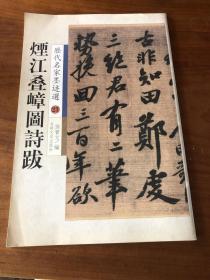 古非知田鄭虔
三絕君有二筆
勢挽回三百年欲
歷代名家墨迹選
煙江叠嶂圖詩跋